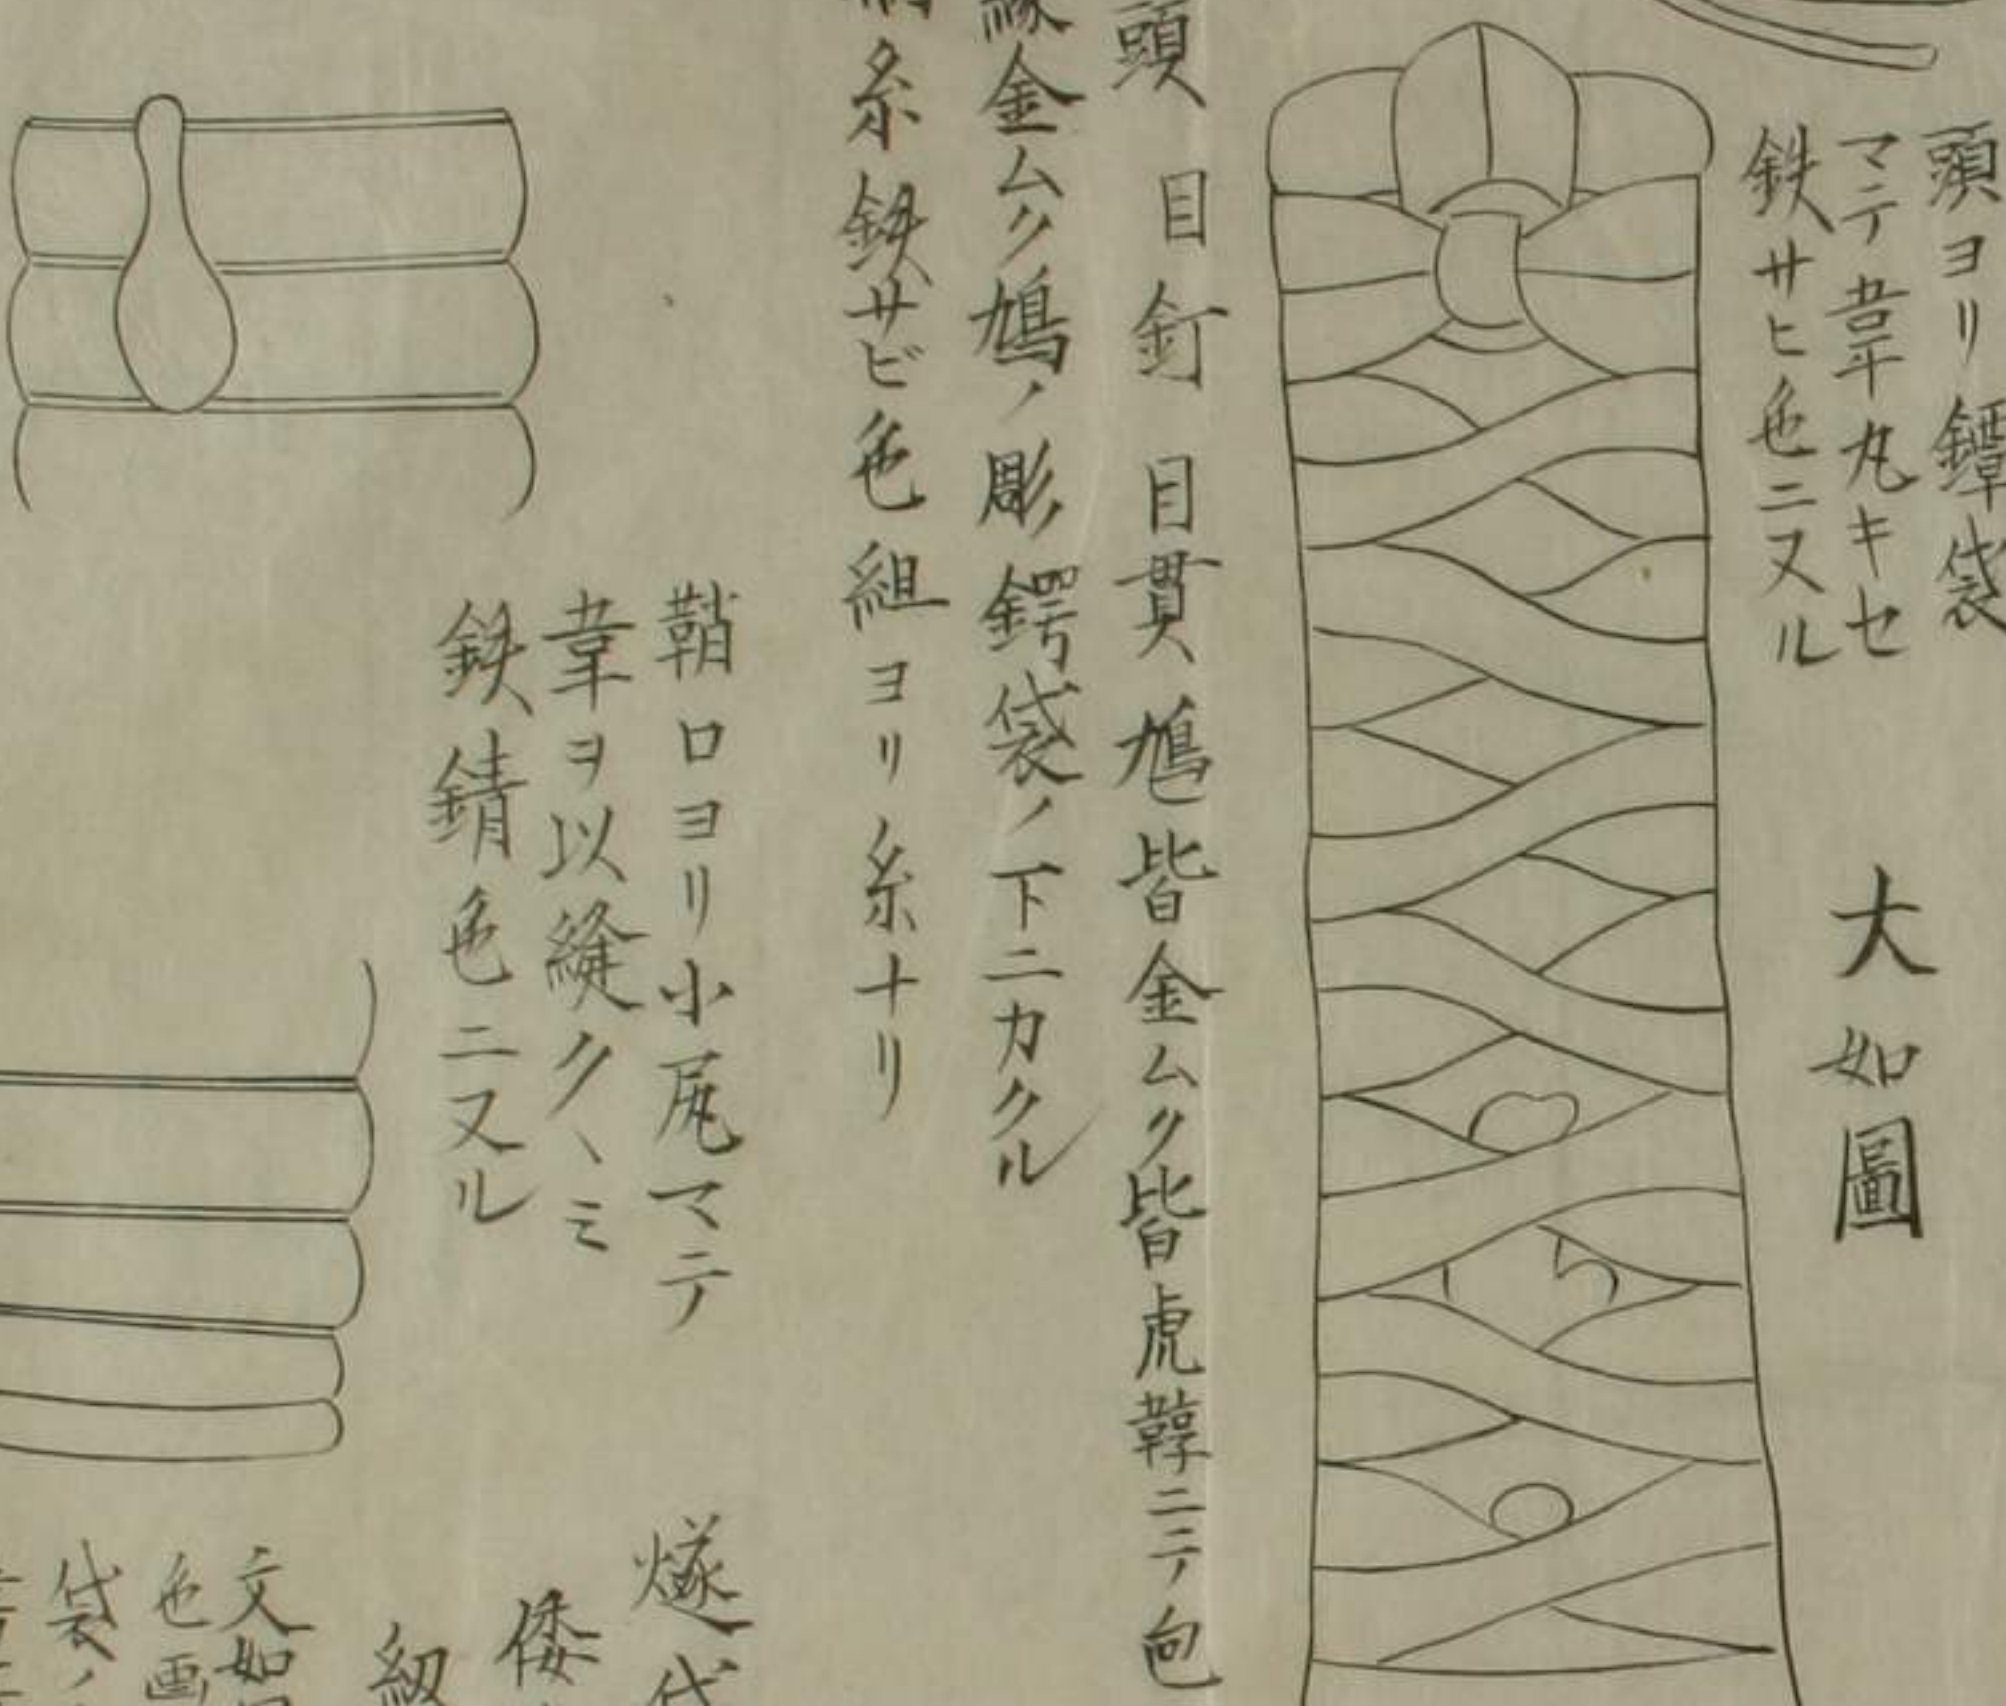 頭ヨリ鐔袋
マテ韋丸キセ
鉄サヒ色ニヌル
大如圖
頭 目釘 目貫 鳩 皆金ムク皆虎韓ニテ包
縁金ムク鳩ノ彫鍔袋ノ下ニカクル
糸鉄サビ色組ヨリ糸ナリ
鞘口ヨリ小尻マテ
韋ヲ以縫クヽミ
鉄錆色ニヌル
燧袋
倭
紐
文如
色画
袋ノ